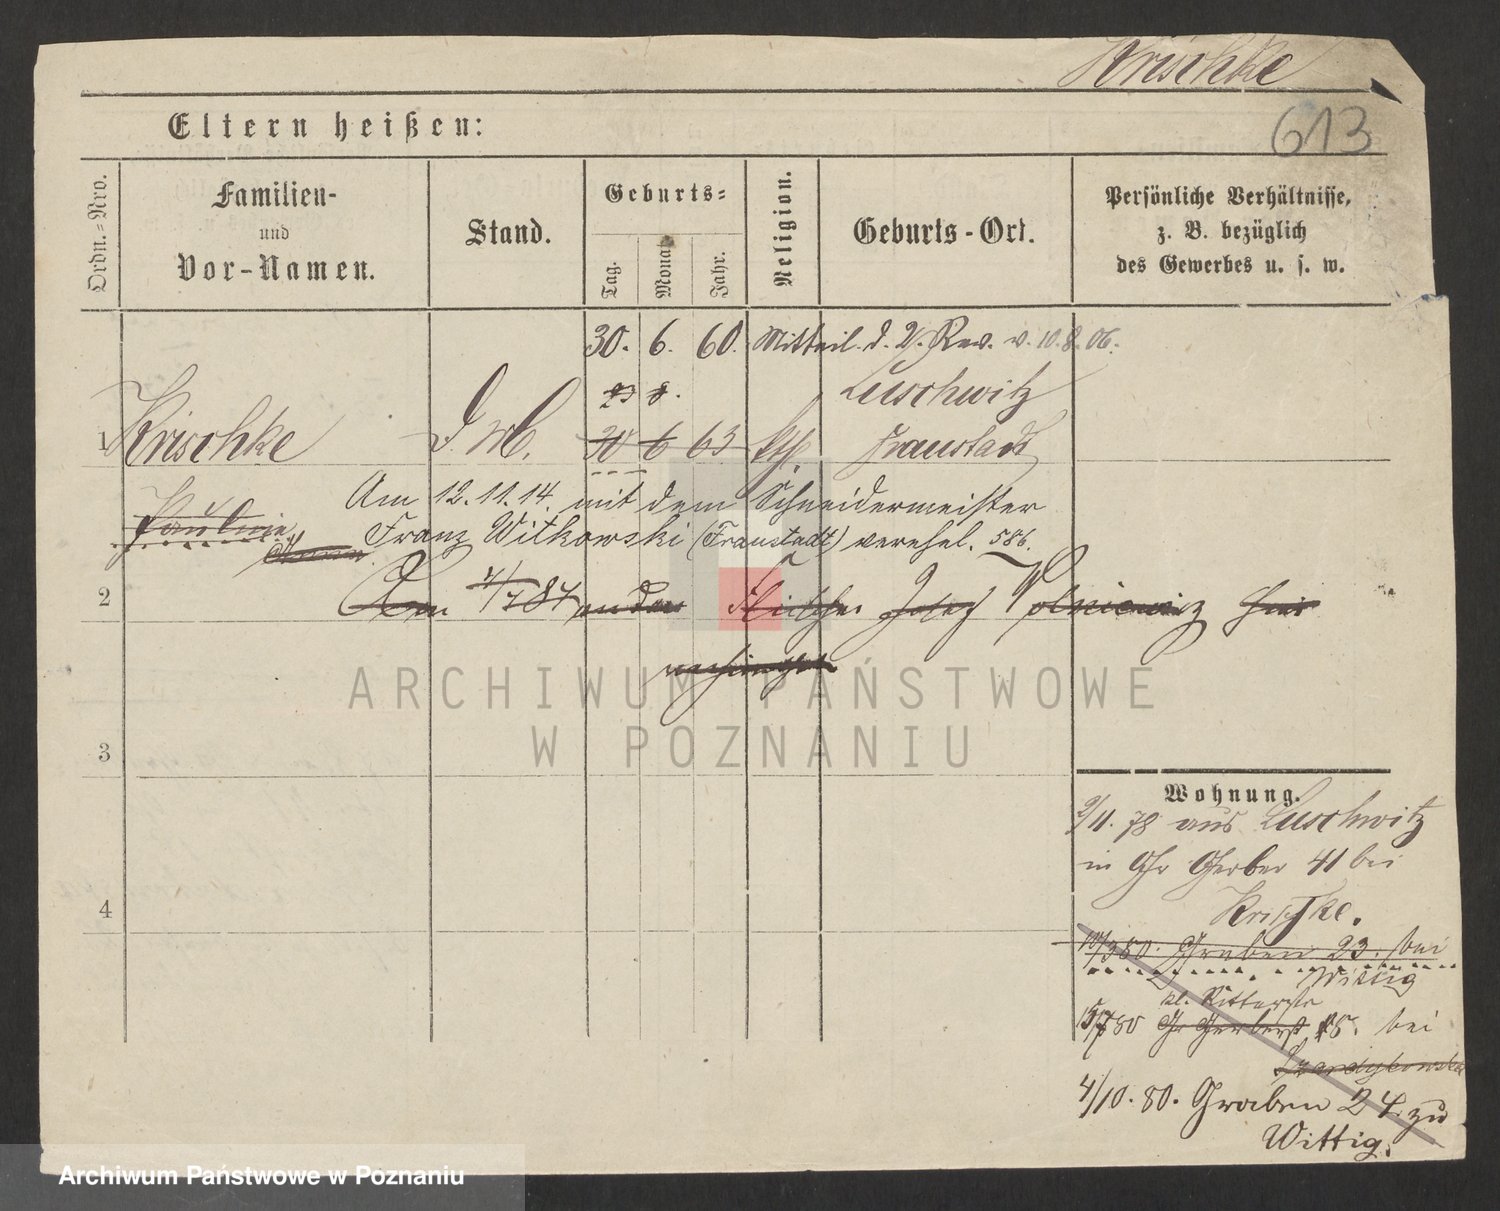 Krischke
613
Eltern heißen:
Ordn.-Nro.
Familien-
und
Vor-Namen.
Stand.
Geburts-
Tag.
Monat
Jahr.
Religion.
Geburts-Ort.
Persönliche Verhältnisse,
z. B. bezüglich
des Gewerbes u. s. w.
30. 6. 60. Mitteil. d. V. Rev. v. 10.8.06.
23 8. Luschwitz
1 Krischke D. M. 30 6 63 kth. Fraustadt
Pauline
Am 12.11.14. mit dem Schneidermeister
Franz Witkowski (Fraustadt) verehel. 586.
2
3
4
Wohnung.
9/11. 78 aus Luschwitz
in Gr Gerber 41 bei
Krischke.
Graben 23. bei
Wittig
kl. Ritterstr
80 Gr Gerberst 15. bei
4/10. 80. Graben 24. zu
Wittig.
ARCHIWUM PAŃSTWOWE
W POZNANIU
Archiwum Państwowe w Poznaniu